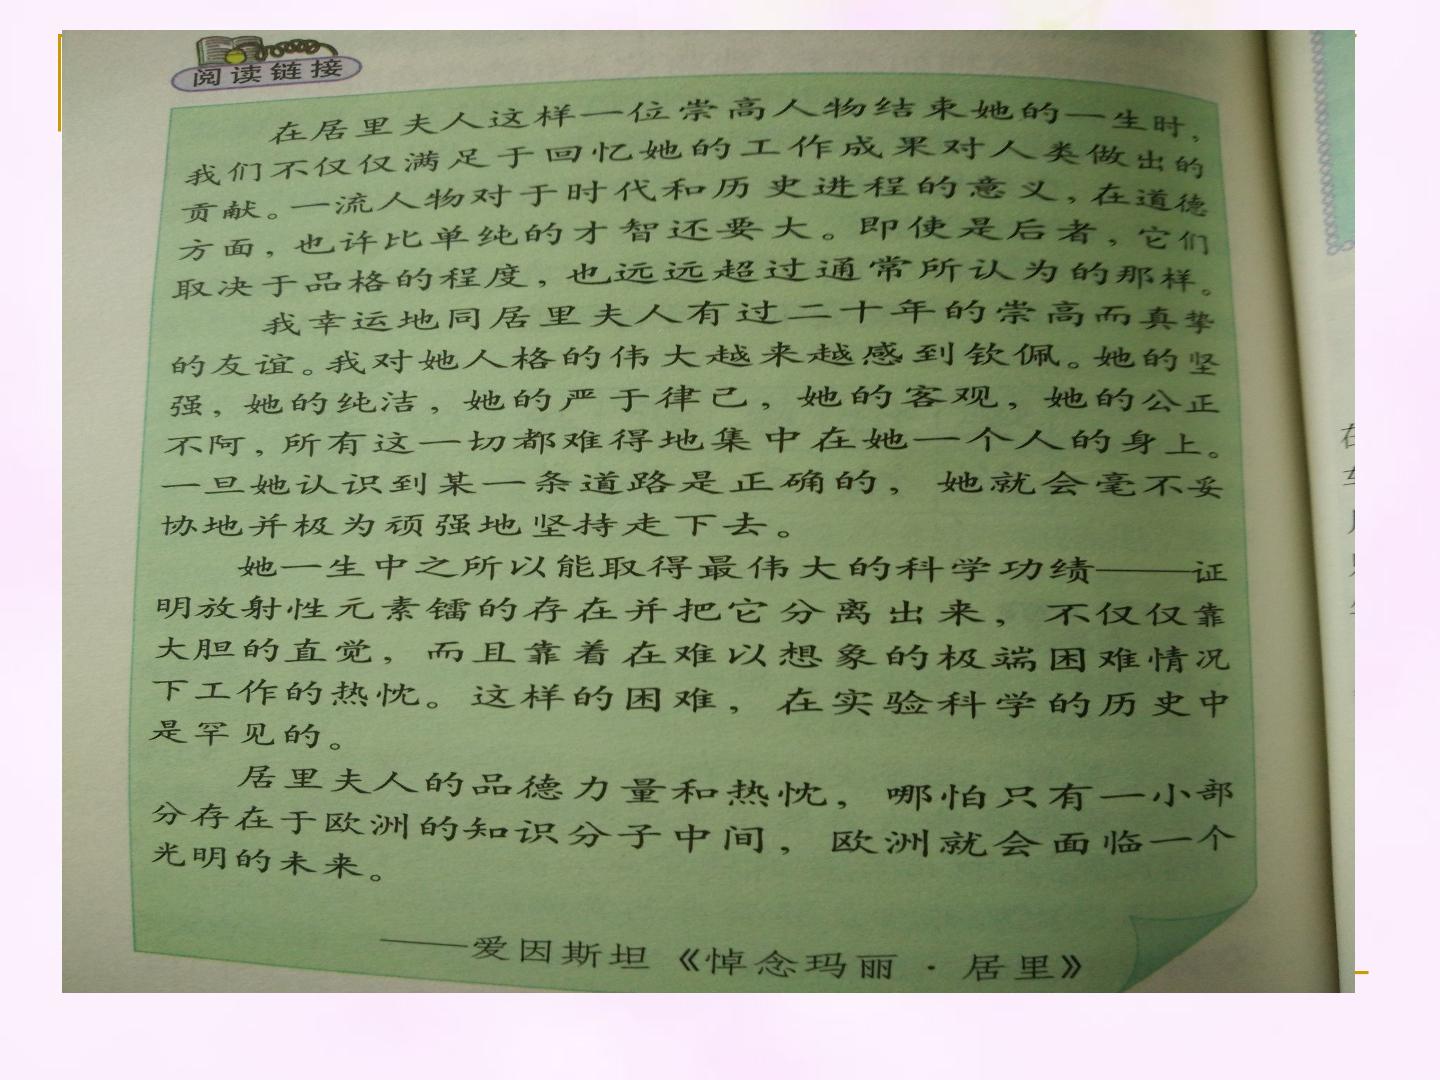 阅读链接
在居里夫人这样一位崇高人物结束她的一生时，
我们不仅仅满足于回忆她的工作成果对人类做出的
贡献。一流人物对于时代和历史进程的意义，在道德
方面，也许比单纯的才智还要大。即使是后者，它们
取决于品格的程度，也远远超过通常所认为的那样。
我幸运地同居里夫人有过二十年的崇高而真挚
的友谊。我对她人格的伟大越来越感到钦佩。她的坚
强，她的纯洁，她的严于律己，她的客观，她的公正
不阿，所有这一切都难得地集中在她一个人的身上。
一旦她认识到某一条道路是正确的，她就会毫不妥
协地并极为顽强地坚持走下去。
她一生中之所以能取得最伟大的科学功绩——证
明放射性元素镭的存在并把它分离出来，不仅仅靠
大胆的直觉，而且靠着在难以想象的极端困难情况
下工作的热忱。这样的困难，在实验科学的历史中
是罕见的。
居里夫人的品德力量和热忱，哪怕只有一小部
分存在于欧洲的知识分子中间，欧洲就会面临一个
光明的未来。
——爱因斯坦《悼念玛丽·居里》